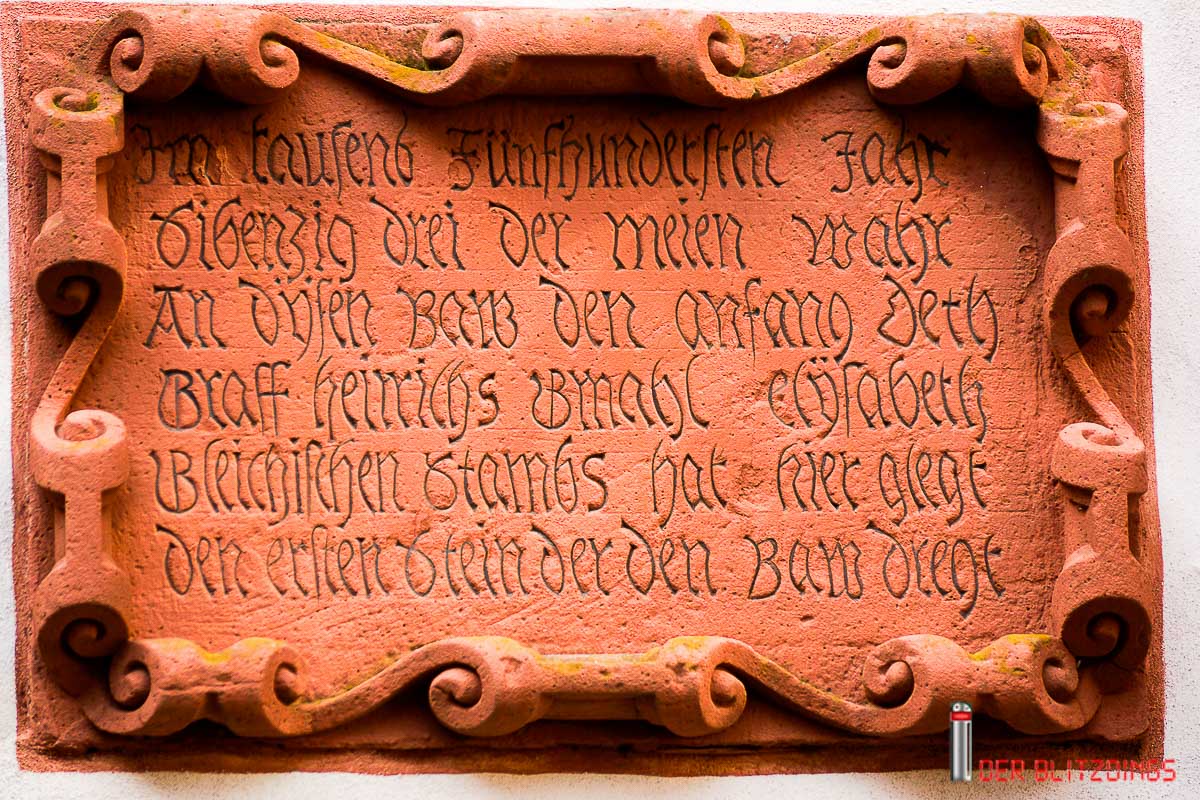 Im tausend Fünfhundersten Jahr
Sibenzig drei der meien wahr
An dÿsen Baw den anfang deth
Graff heinrichs Gmahl elÿsabeth
Gleichischen Stambs hat hier glegt
den ersten Stein der den Baw dregt
DER BLITZDINGS